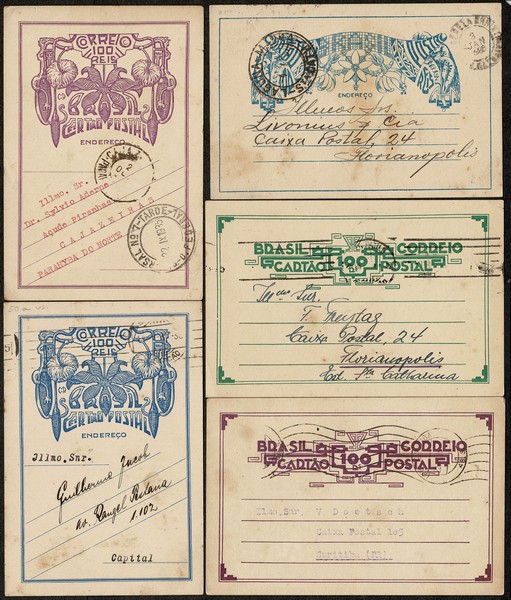 CORREIO
100
REIS
BRASIL
CARTÃO POSTAL
ENDEREÇO
Illmo. Sr.
Dr. Sylvio Aderne
Açude Piranhas
CAJAZEIRAS
PARAHYBA DO NORTE
TARDE
ENDEREÇO
Illmos Srs.
Livonius & Cia
Caixa Postal, 24
Florianopolis
BRASIL CORREIO
CARTÃO 100 POSTAL
Illmo Snr.
F. Freytag
Caixa Postal, 24
Florianopolis
Est. Sta Catharina
CORREIO
100
REIS
BRASIL
CARTÃO POSTAL
ENDEREÇO
Illmo.Snr.
Guilherme Jacob
Av. Rangel Pestana
1.102
Capital
BRASIL CORREIO
CARTÃO 100 POSTAL
Illmo.Snr. V
Caixa Postal 105
Curitiba